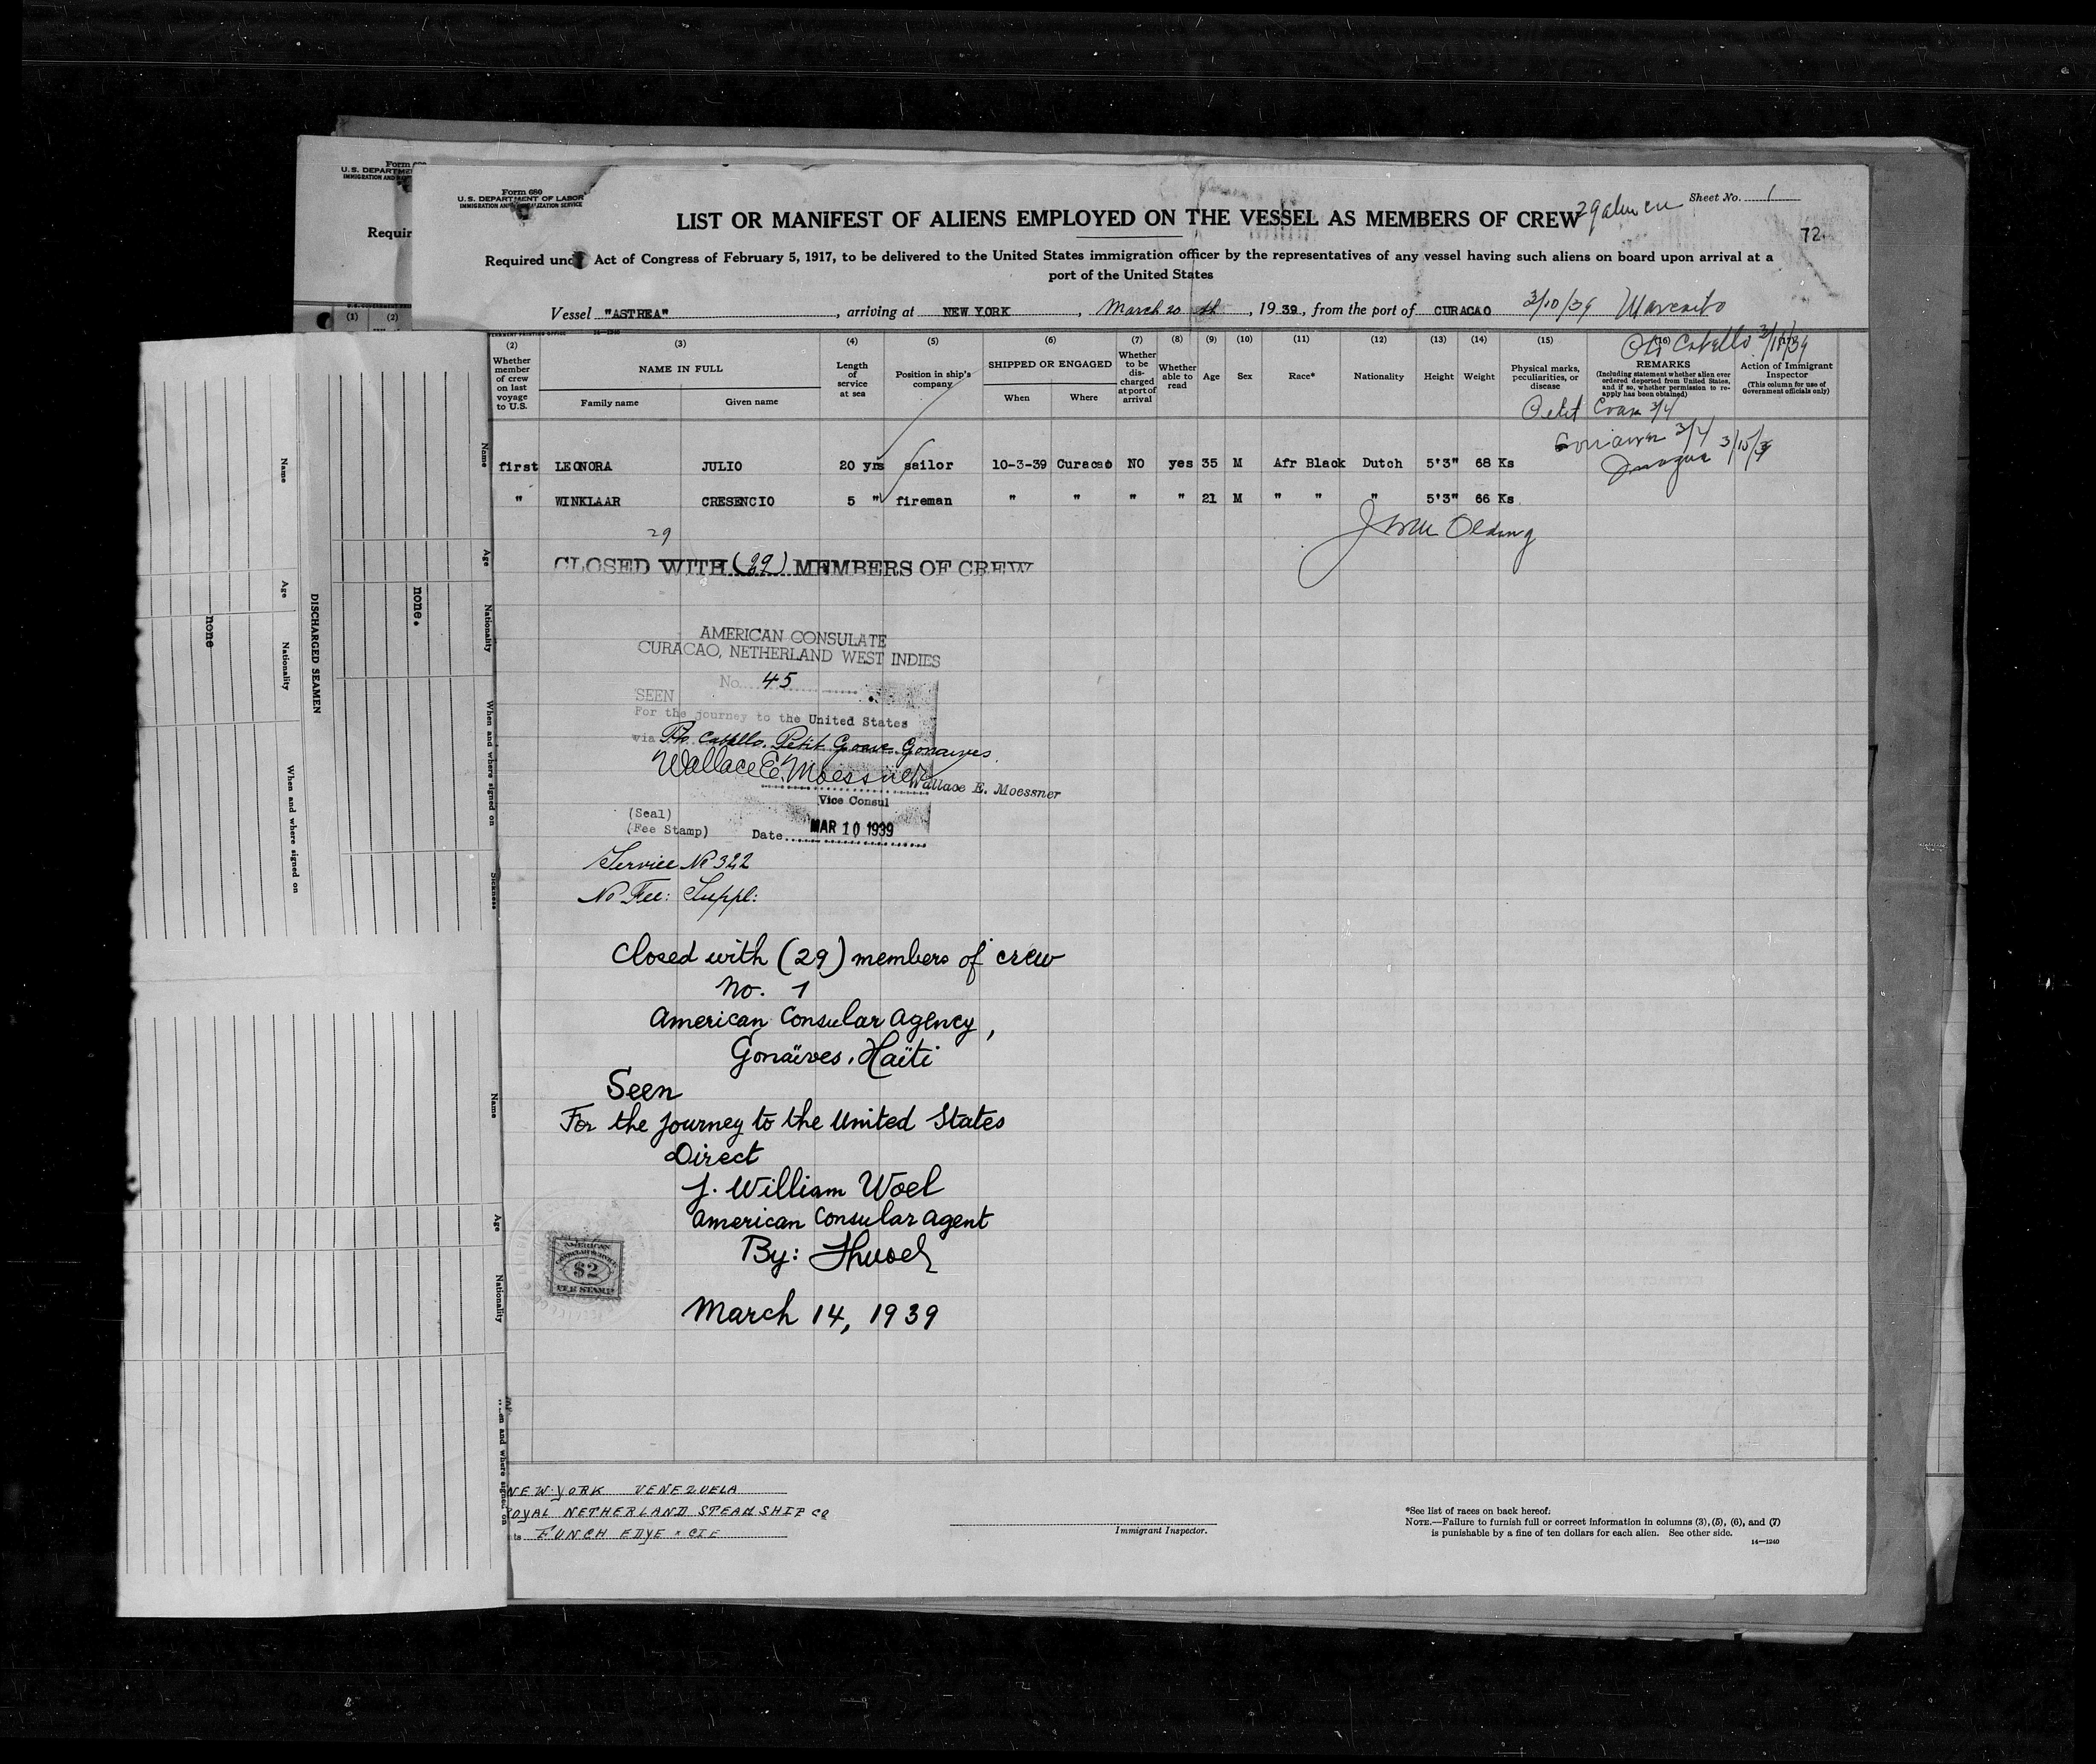 Form 680
U.S. DEPARTMENT OF LABOR
IMMIGRATION AND NATURALIZATION SERVICE
Sheet No. 1
72
LIST OR MANIFEST OF ALIENS EMPLOYED ON THE VESSEL AS MEMBERS OF CREW
Required under Act of Congress of February 5, 1917, to be delivered to the United States immigration officer by the representatives of any vessel having such aliens on board upon arrival at a
port of the United States
Vessel "ASTREA", arriving at NEW YORK, March 20 th, 1939, from the port of CURACAO 3/10/39
(2) (3) (4) (5) (6) (7) (8) (9) (10) (11) (12) (13) (14) (15) (16) (17)
Whether member of crew on last voyage to U.S.
NAME IN FULL
Family name
Given name
Length of service at sea
Position in ship's company
SHIPPED OR ENGAGED
When
Where
Whether to be discharged at port of arrival
Whether able to read
Age
Sex
Race*
Nationality
Height
Weight
Physical marks, peculiarities, or disease
REMARKS
(Including statement whether alien ever ordered deported from United States, and if so, whether permission to reapply has been obtained)
Action of Immigrant Inspector
(This column for use of Government officials only)
Petit 3/4
3/4 3/15/39
first LEONORA JULIO 20 yrs sailor 10-3-39 Curacao NO yes 35 M Afr Black Dutch 5'3" 68 Ks
" WINKLAAR CRESENCIO 5 " fireman " " " " 21 M " " " 5'3" 66 Ks
29
CLOSED WITH (29) MEMBERS OF CREW
AMERICAN CONSULATE
CURACAO, NETHERLAND WEST INDIES
No. 45
SEEN
For the journey to the United States
via Pto Cabello. Petit Goave Gonaives.
Wallace E. Moessner
Wallace E. Moessner
Vice Consul
(Seal)
(Fee Stamp)
Date MAR 10 1939
Service No 322
No Fee: Suppl:
Closed with (29) members of crew
No. 1
American Consular Agency,
Gonaïves, Haïti
Seen
For the journey to the United States
Direct
J. William Woel
American Consular Agent
By:
AMERICAN
CONSULAR SERVICE
$2
FEE STAMP
March 14, 1939
NEW YORK VENEZUELA
ROYAL NETHERLAND STEAMSHIP CO
FUNCH EDYE & CIE
Immigrant Inspector.
*See list of races on back hereof.
NOTE.—Failure to furnish full or correct information in columns (3), (5), (6), and (7)
is punishable by a fine of ten dollars for each alien. See other side.
14—1240
Form
U.S. DEPARTME
IMMIGRATION AND
Requir
(1) (2)
Name
Age
Nationality
When and where signed on
Sickness
none.
DISCHARGED SEAMEN
Name
Age
Nationality
When and where signed on
none
Name
Age
Nationality
When and where signed on